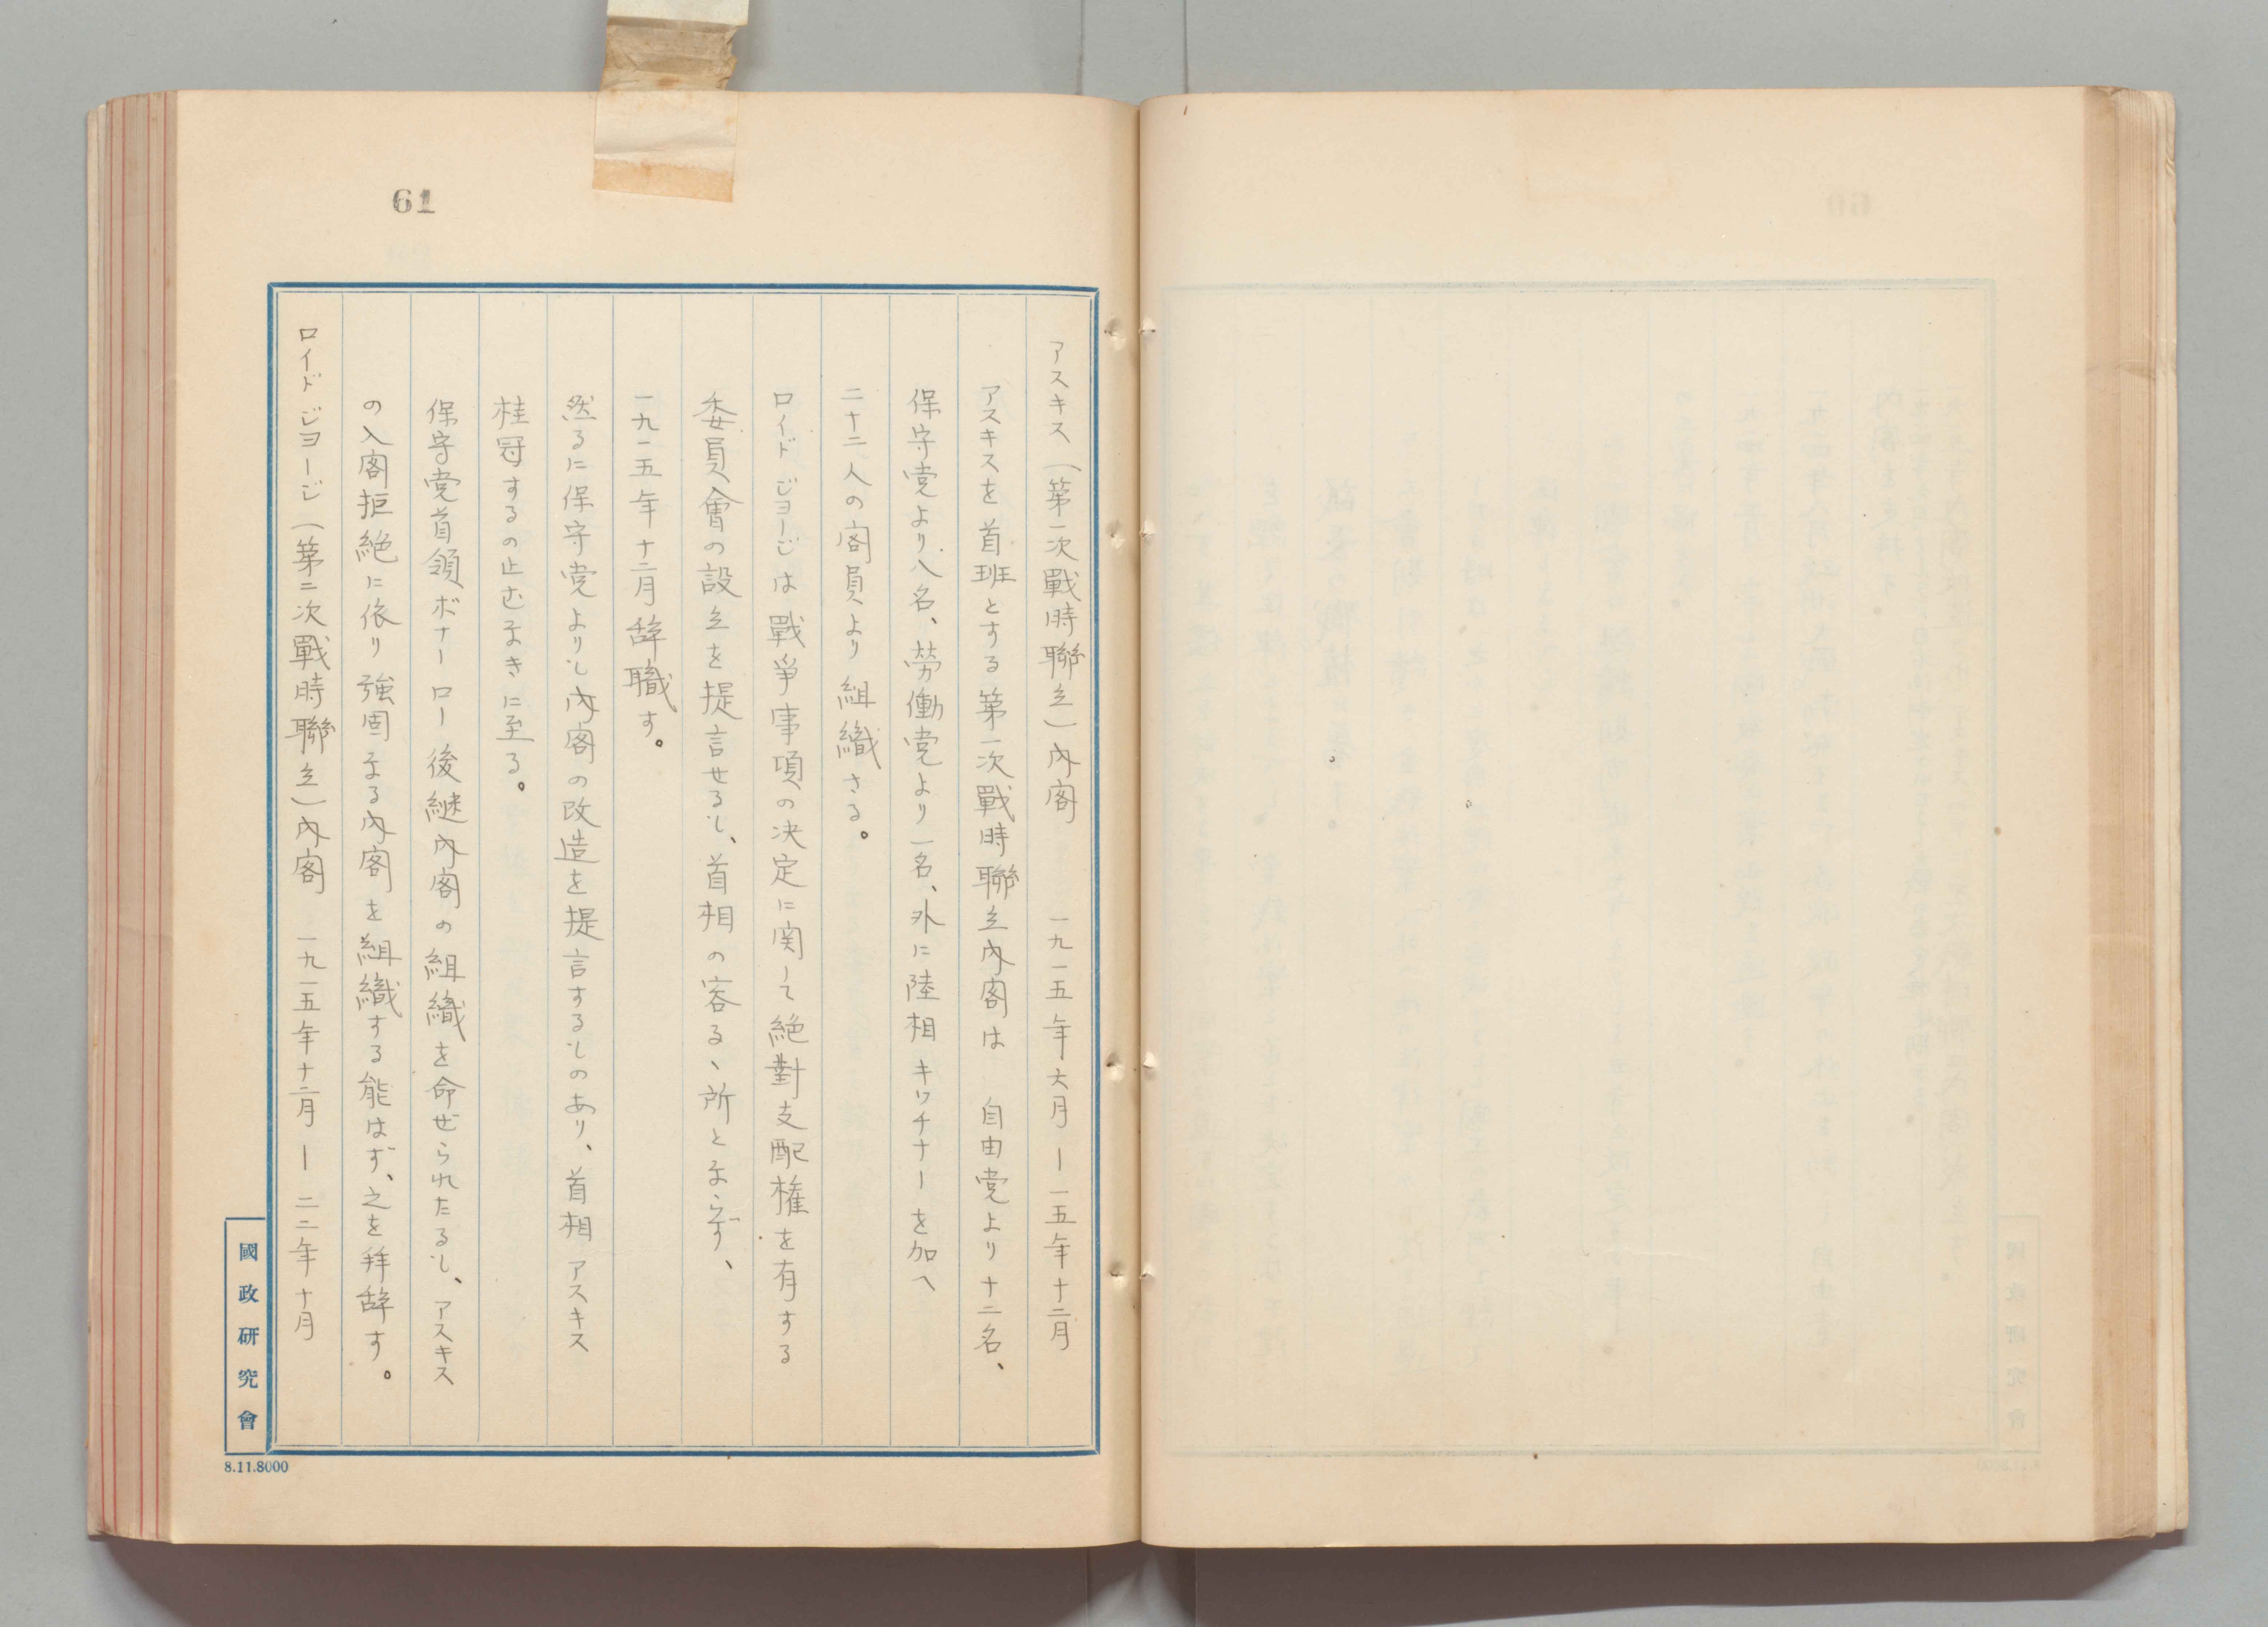 61
アスキス(第一次戰時聯立)內閣 一九一五年六月―一五年十二月
アスキスを首班とする第一次戰時聯立內閣は 自由党より十二名、
保守党より八名、勞働党より一名、外に陸相キッチナーを加へ
二十二人の閣員より組織さる。
ロイドジョージは戰爭事項の決定に関して絶對支配権を有する
委員會の設立を提言せるも、首相の容るゝ所とならず、
一九一五年十二月辞職す。
然るに保守党よりも內閣の改造を提言するものあり、首相アスキス
桂冠するの止むなきに至る。
保守党首領ボナーロー後継內閣の組織を命ぜられたるも、アスキス
の入閣拒絶に依り強固なる內閣を組織する能はず、之を拜辞す。
ロイドジョージ(第二次戰時聯立)內閣 一九一五年十二月―二二年十月
國政研究會
8.11.8000